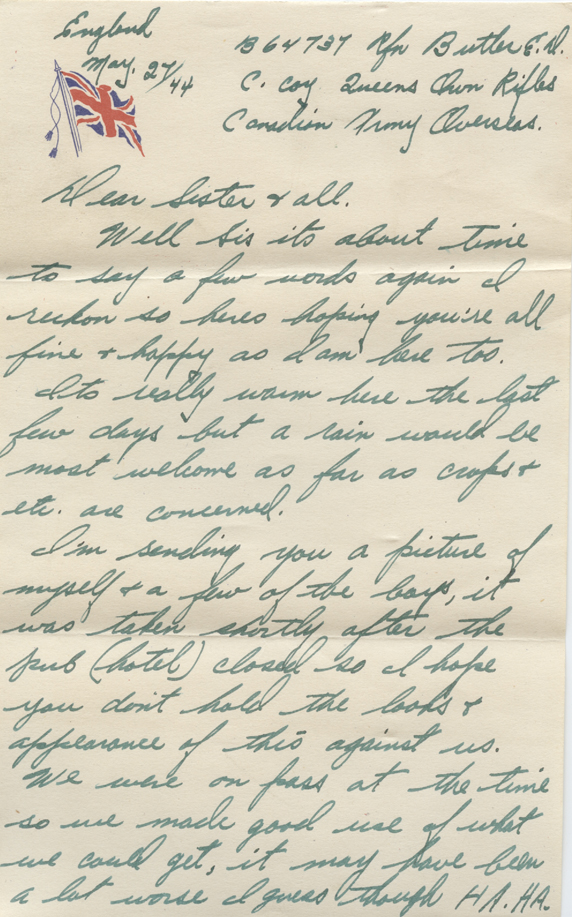 England
May. 27/44
B64737 Rfn Butler E.D.
C. Coy Queens Own Rifles
Canadian Army Overseas.
Dear Sister & all.
Well Sis its about time
to say a few words again I
reckon so heres hoping you're all
fine & happy as I am here too.
Its really warm here the last
few days but a rain would be
most welcome as far as crops &
etc. are concerned.
I'm sending you a picture of
myself & a few of the boys, it
was taken shortly after the
pub (hotel) closed so I hope
you don't hold the looks &
appearance of this against us.
We were on pass at the time
so we made good use of what
we could get, it may have been
a lot worse I guess though HA. HA.